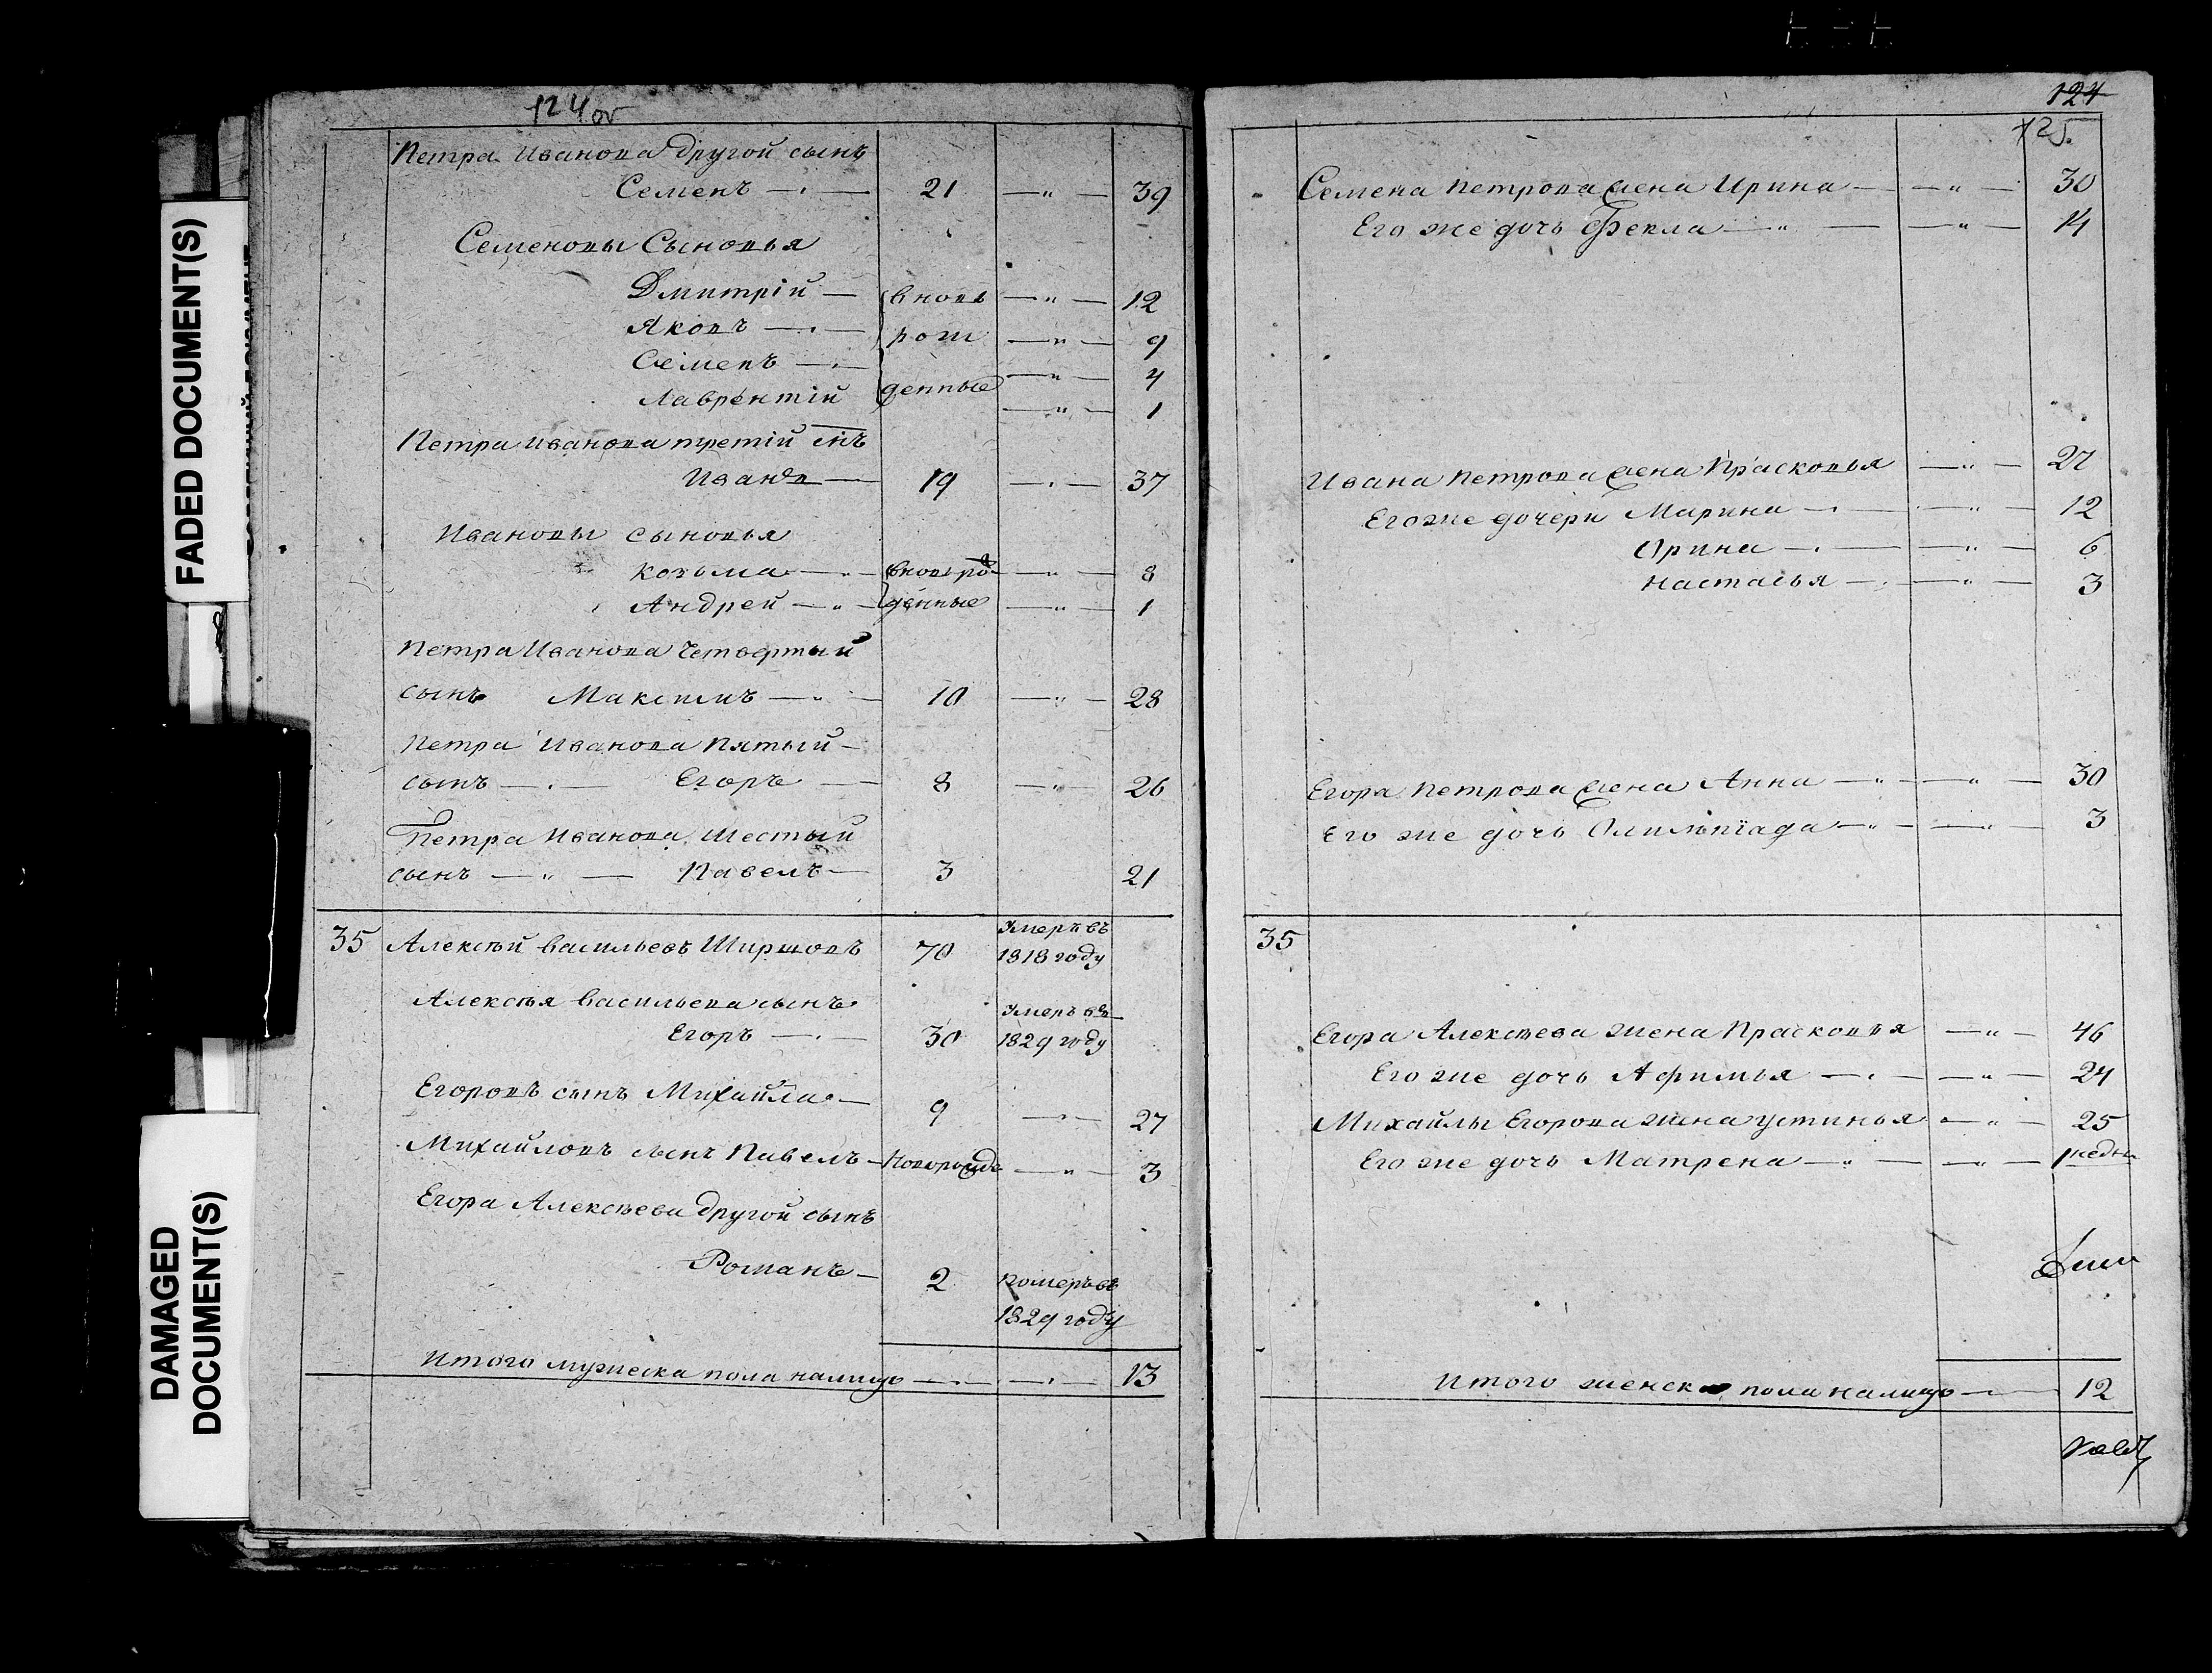 FADED DOCUMENT(S)
DAMAGED
DOCUMENT(S)
124 об
Петра Иванова другой сынъ
Семенъ — 21 — " — 39
Семеновы Сыновья
Дмитрій — вновь — " — 12
Яковъ — рож — " — 9
Семенъ — — " — 4
Лаврентій денные — " — 1
Петра Иванова третій снъ
Иванъ — 19 — " — 37
Ивановы сыновья
Козьма — " — вновь рож — " — 8
Андрей — " — денные — " — 1
Петра Иванова Четвертый
сынъ Максимъ — " — 10 — " — 28
Петра Иванова Пятый
сынъ — " — Егоръ — 8 — " — 26
Петра Иванова Шестый
сынъ — " — Павелъ — 3 21
35 Алексѣй Васильевъ Ширшовъ 70 Умеръ въ
1818 году
Алексѣя Васильева сынъ
Егоръ — 30 Умеръ въ
1829 году
Егоровъ сынъ Михайла — 9 — " — 27
Михайловъ сынъ Павелъ — Новорожде — " — 3
Егора Алексѣева другой сынъ
Романъ — 2 померъ въ
1829 году
Итого мужеска пола налицо — " — — " — 13
124
125.
Семена Петрова жена Ирина — — " — 30
Его же дочь Фекла — " — — " — 14
Ивана Петрова жена Прасковья — " — 27
Его же дочери Марина — " — — " — 12
Орина — " — — " — 6
Настасья — " — — " — 3
Егора Петрова жена Анна — " — — " — 30
Его же дочь Олимпіада — " — — " — 3
35
Егора Алексѣева жена Прасковья — " — 46
Его же дочь Афимья — " — — " — 24
Михайлы Егорова жена Устинья — " — 25
Его же дочь Матрена — " — — " — 1 недѣ
Итого женска пола налицо — 12